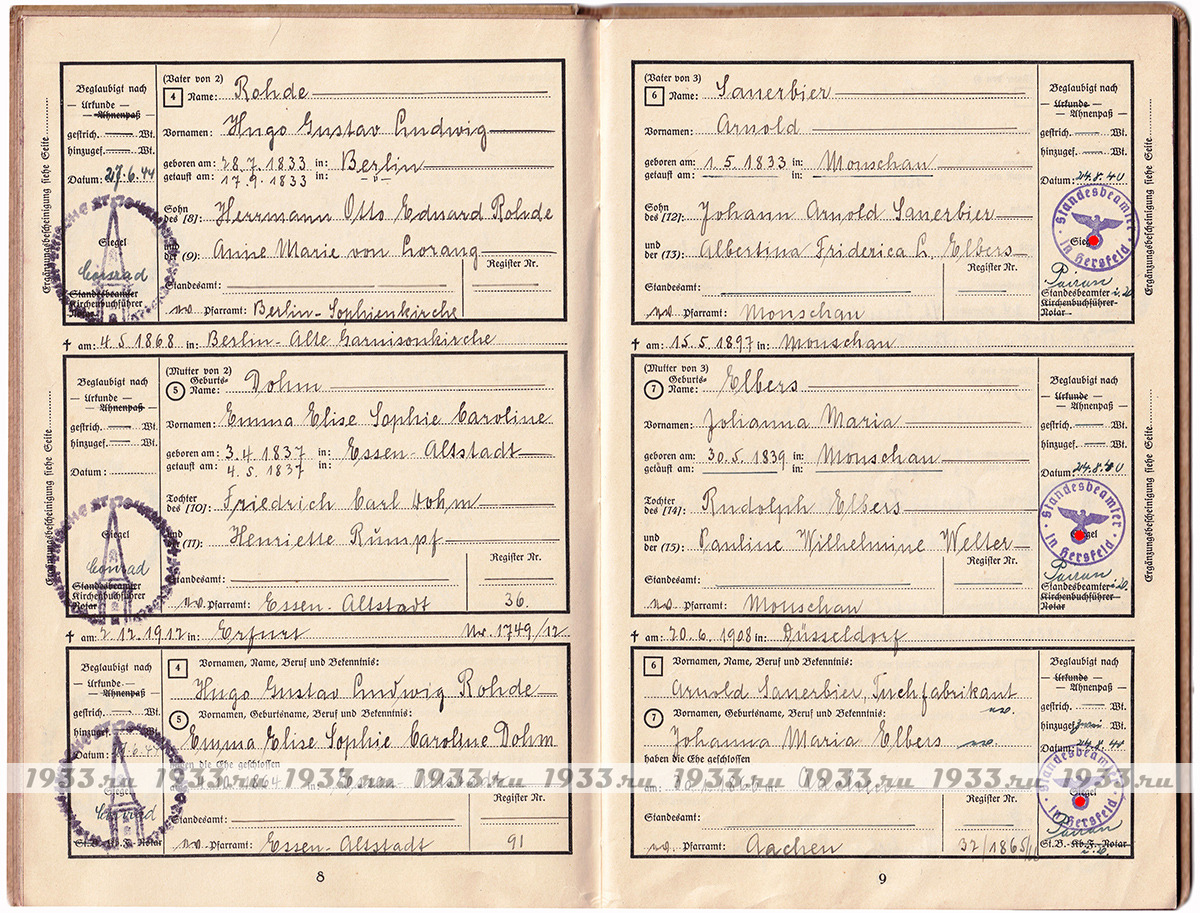 Ergänzungsbescheinigung siehe Seite
Beglaubigt nach
— Urkunde —
— Ahnenpaß —
gestrich. — Wt.
hinzugef. — Wt.
Datum: 27.6.44
Siegel
Conrad
Standesbeamter
Kirchenbuchführer
Notar
(Vater von 2)
4 Name: Rohde
Vornamen: Hugo Gustav Ludwig
geboren am: 28.7.1833 in: Berlin
getauft am: 17.9.1833 in: "
Sohn des [8]: Herrmann Otto Eduard Rohde
und der (9): Anne Marie von Lorang
Register Nr.
Standesamt:
ev. Pfarramt: Berlin-Sophienkirche
† am: 4.5.1868 in: Berlin-Alte Garnisonkirche
Ergänzungsbescheinigung siehe Seite
Beglaubigt nach
— Urkunde —
— Ahnenpaß —
gestrich. — Wt.
hinzugef. — Wt.
Datum:
Siegel
Conrad
Standesbeamter
Kirchenbuchführer
Notar
(Mutter von 2)
5 Geburts-Name: Dohm
Vornamen: Emma Elise Sophie Caroline
geboren am: 3.4.1837 in: Essen-Altstadt
getauft am: 4.5.1837 in:
Tochter des [10]: Friedrich Carl Dohm
und der (11): Henriette Rumpf
Register Nr.
Standesamt:
ev. Pfarramt: Essen-Altstadt 36.
† am: 2.12.1912 in: Erfurt Nr. 1749/12
Beglaubigt nach
— Urkunde —
— Ahnenpaß —
gestrich. — Wt.
hinzugef. — Wt.
Datum:
Siegel
Conrad
St.B.-Kb.F.-Notar
4 Vornamen, Name, Beruf und Bekenntnis:
Hugo Gustav Ludwig Rohde
5 Vornamen, Geburtsname, Beruf und Bekenntnis:
Emma Elise Sophie Caroline Dohm
haben die Ehe geschlossen
Register Nr.
Standesamt:
ev. Pfarramt: Essen-Altstadt 91
8
(Vater von 3)
6 Name: Sauerbier
Vornamen: Arnold
geboren am: 1.5.1833 in: Monschau
getauft am: in:
Sohn des [12]: Johann Arnold Sauerbier
und der (13): Albertina Friderica L. Elbers
Register Nr.
Standesamt:
ev. Pfarramt: Monschau
† am: 15.5.1897 in: Monschau
Beglaubigt nach
— Urkunde —
— Ahnenpaß —
gestrich. — Wt.
hinzugef. — Wt.
Datum: 24.8.40
Standesbeamter in Hersfeld
Siegel
Standesbeamter
Kirchenbuchführer
Notar
Ergänzungsbescheinigung siehe Seite
(Mutter von 3)
7 Geburts-Name: Elbers
Vornamen: Johanna Maria
geboren am: 30.5.1839 in: Monschau
getauft am: in:
Tochter des [14]: Rudolph Elbers
und der (15): Pauline Wilhelmine Welter
Register Nr.
Standesamt:
ev. Pfarramt: Monschau
† am: 20.6.1908 in: Düsseldorf
Beglaubigt nach
— Urkunde —
— Ahnenpaß —
gestrich. — Wt.
hinzugef. — Wt.
Datum: 24.8.40
Standesbeamter in Hersfeld
Siegel
Standesbeamter
Kirchenbuchführer
Notar
Ergänzungsbescheinigung siehe Seite
6 Vornamen, Name, Beruf und Bekenntnis:
Arnold Sauerbier, Tuchfabrikant
ev.
7 Vornamen, Geburtsname, Beruf und Bekenntnis:
Johanna Maria Elbers ev.
haben die Ehe geschlossen
Register Nr.
Standesamt:
ev. Pfarramt: Aachen 32/1865
Beglaubigt nach
— Urkunde —
— Ahnenpaß —
gestrich. — Wt.
hinzugef. Wt.
Datum:
Standesbeamter in Hersfeld
Siegel
St.B.-Kb.F.-Notar
9
1933.ru 1933.ru 1933.ru 1933.ru 1933.ru 1933.ru 1933.ru 1933.ru 1933.ru